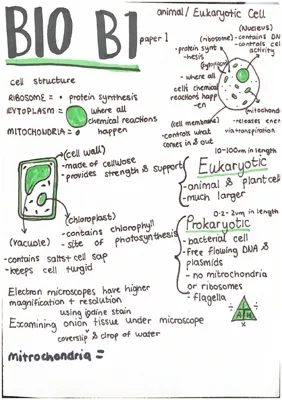 BIO B1
paper 1
cell structure
RIBOSOME = • protein synthesis
CYTOPLASM = where all
chemical reactions
happen
MITOCHONDRIA =
animal/Eukaryotic Cell
(Nucleus)
- contains DNA
- controls cell
activity
(ribosome)
- protein synt
-hesis
(cytoplasm)
- where all
cells chemical
reactions happ
-en
(cell membrane)
- controls what
comes in & out
(mitochond
- releases ener
via transpiration
(cell wall)
- made of cellulose
- provides strength & support
(chloroplast)
- contains chlorophyll
- site of photosynthesis
(vacuole)
- contains salts + cell sap
- keeps cell turgid
10-100um in length
Eukaryotic
- animal & plant cell
- much larger
0.2-2um in length
Prokaryotic
- bacterial cell
- free flowing DNA &
plasmids
- no mitrochondria
or ribosomes
- flagella
Electron microscopes have higher
magnification + resolution
using iodine stain
Examining onion tissue under microscope
coverslip & drop of water
mitrochondria =
I
A M